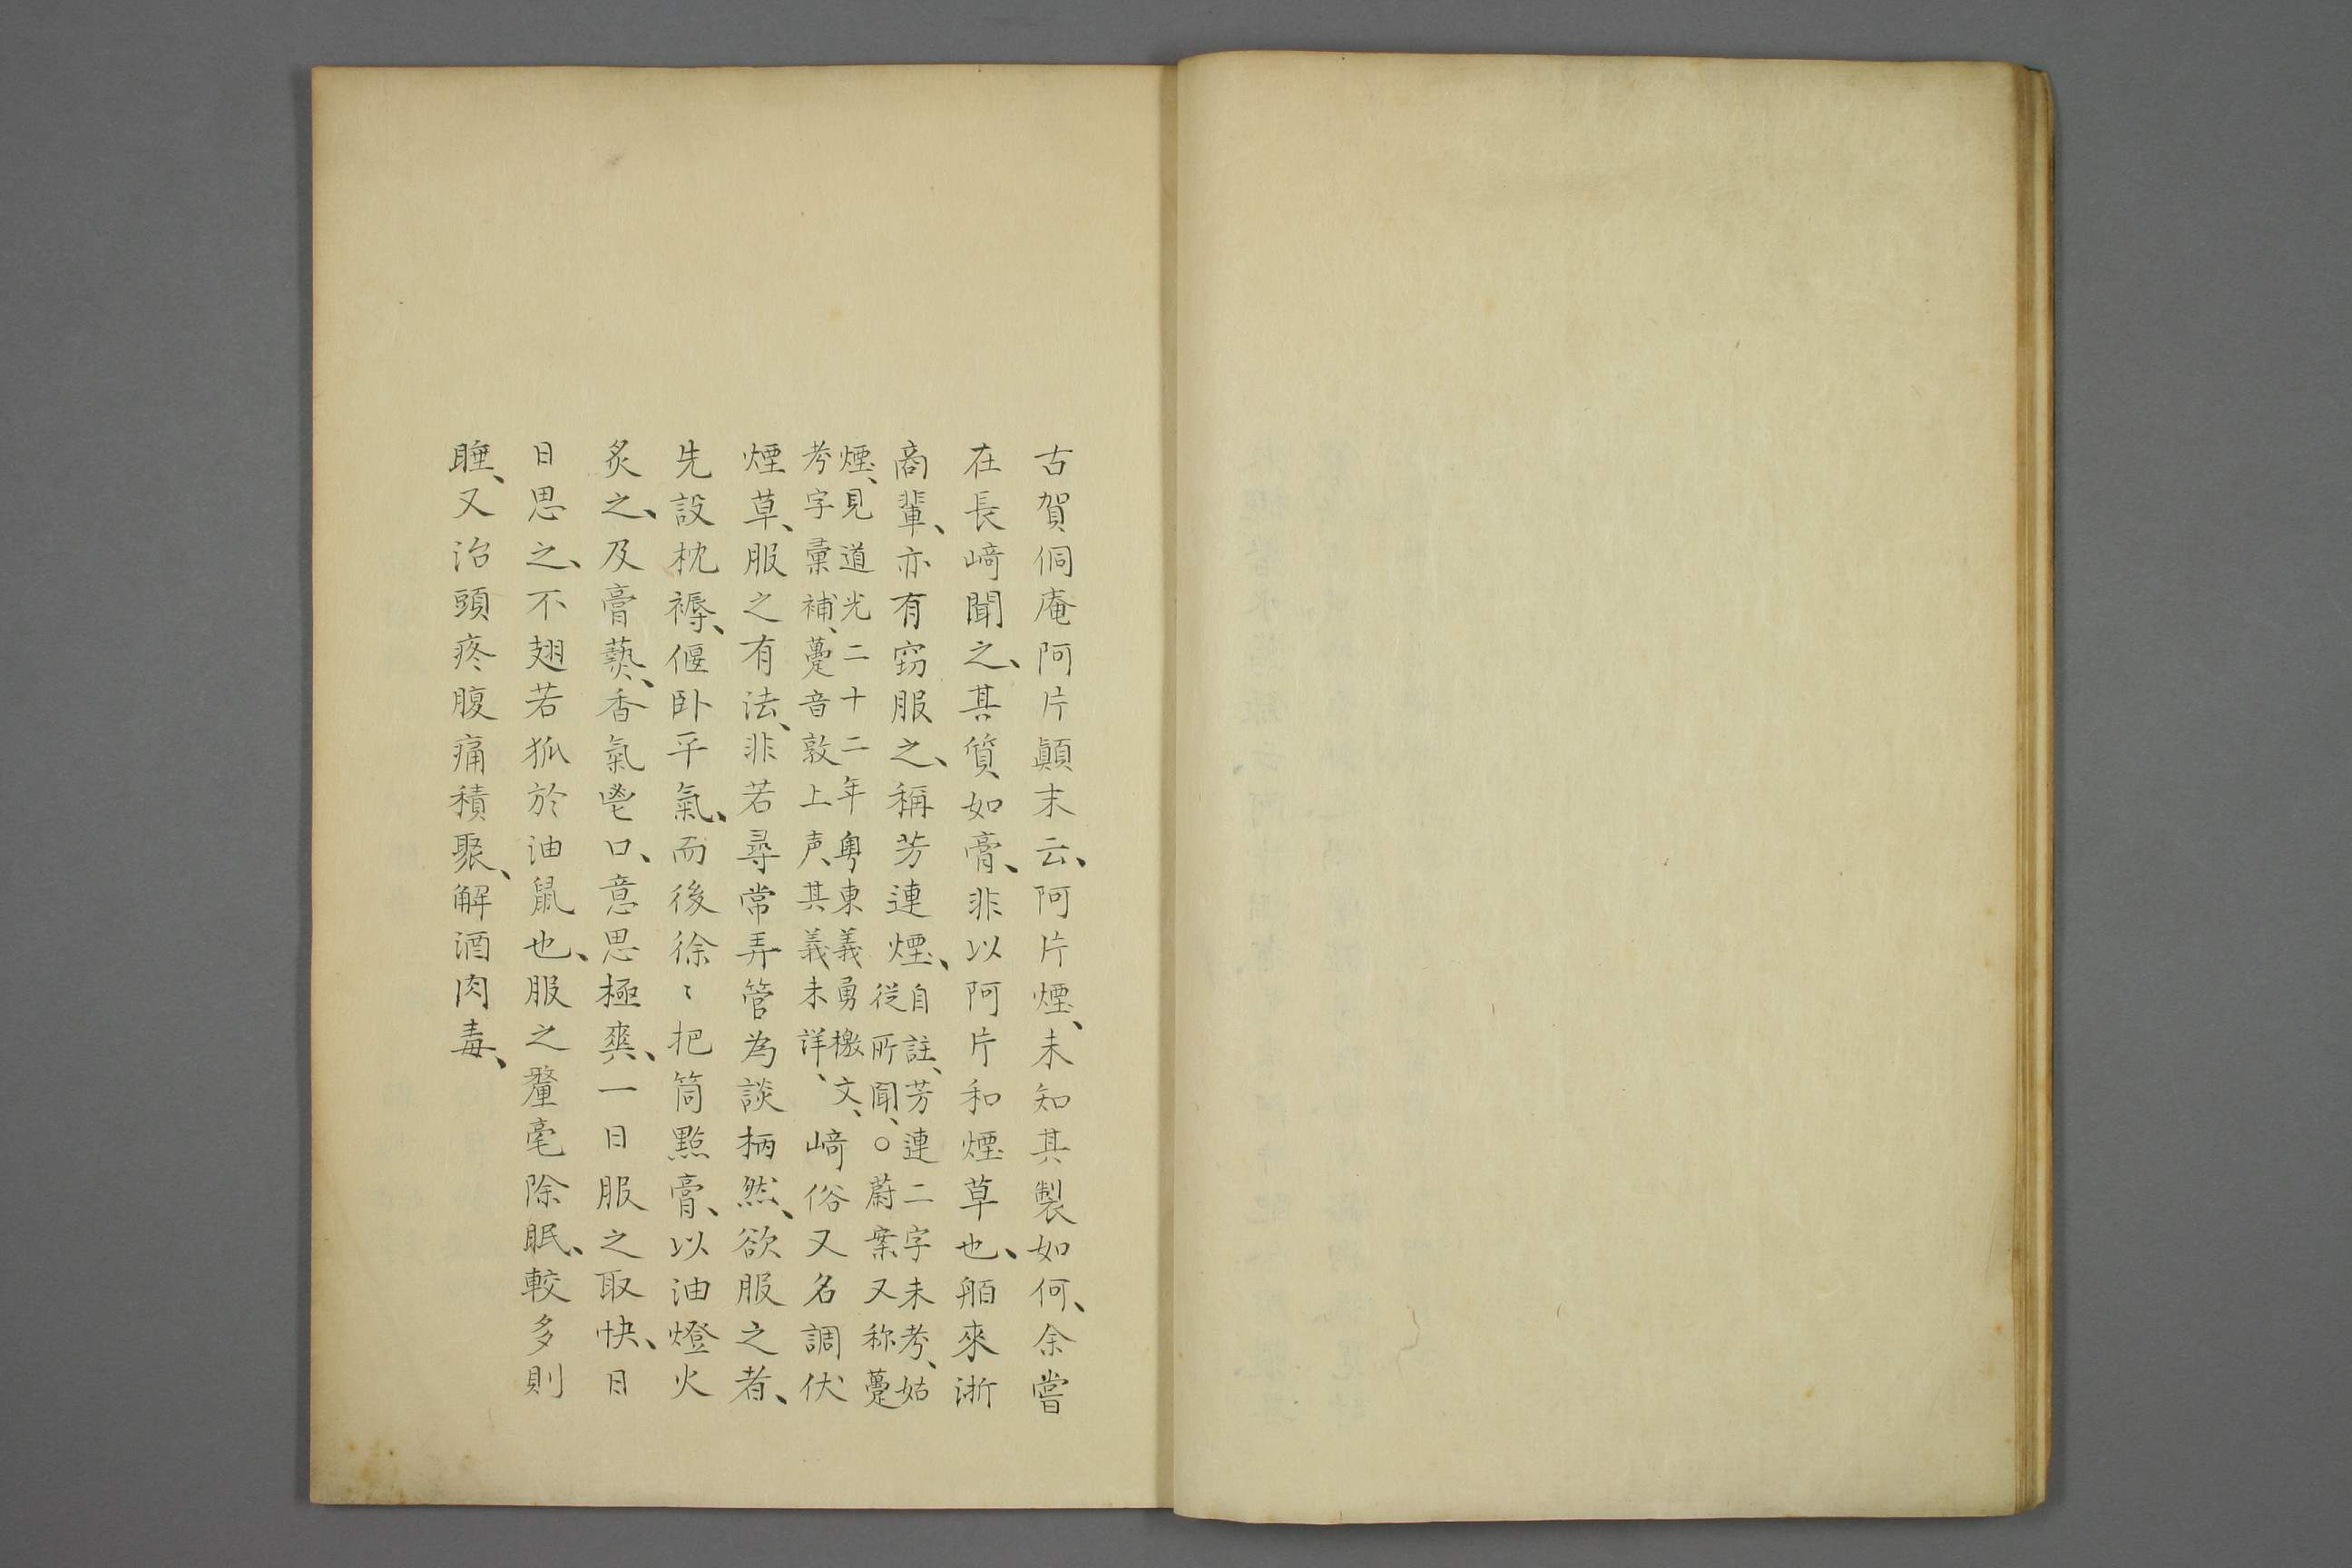 古賀侗庵阿片顛末云、阿片煙、未知其製如何、余嘗
在長﨑聞之、其質如膏、非以阿片和煙草也、舶來浙
商輩、亦有窃服之、稱芳連煙、自註、芳連二字未考、姑
從所聞、○蔚案又称躉
煙、見道光二十二年粤東義勇檄文、
考字彙補、躉音敦上声、其義未詳、
﨑俗又名調伏
煙草、服之有法、非若尋常弄管為談柄然、欲服之者、
先設枕褥、偃卧平氣、而後徐〻把筒點膏、以油燈火
炙之、及膏爇、香氣鬯口、意思極爽、一日服之取快、日
日思之、不翅若狐於油鼠也、服之釐毫除眠、較多則
睡、又治頭疼腹痛積聚、解酒肉毒、